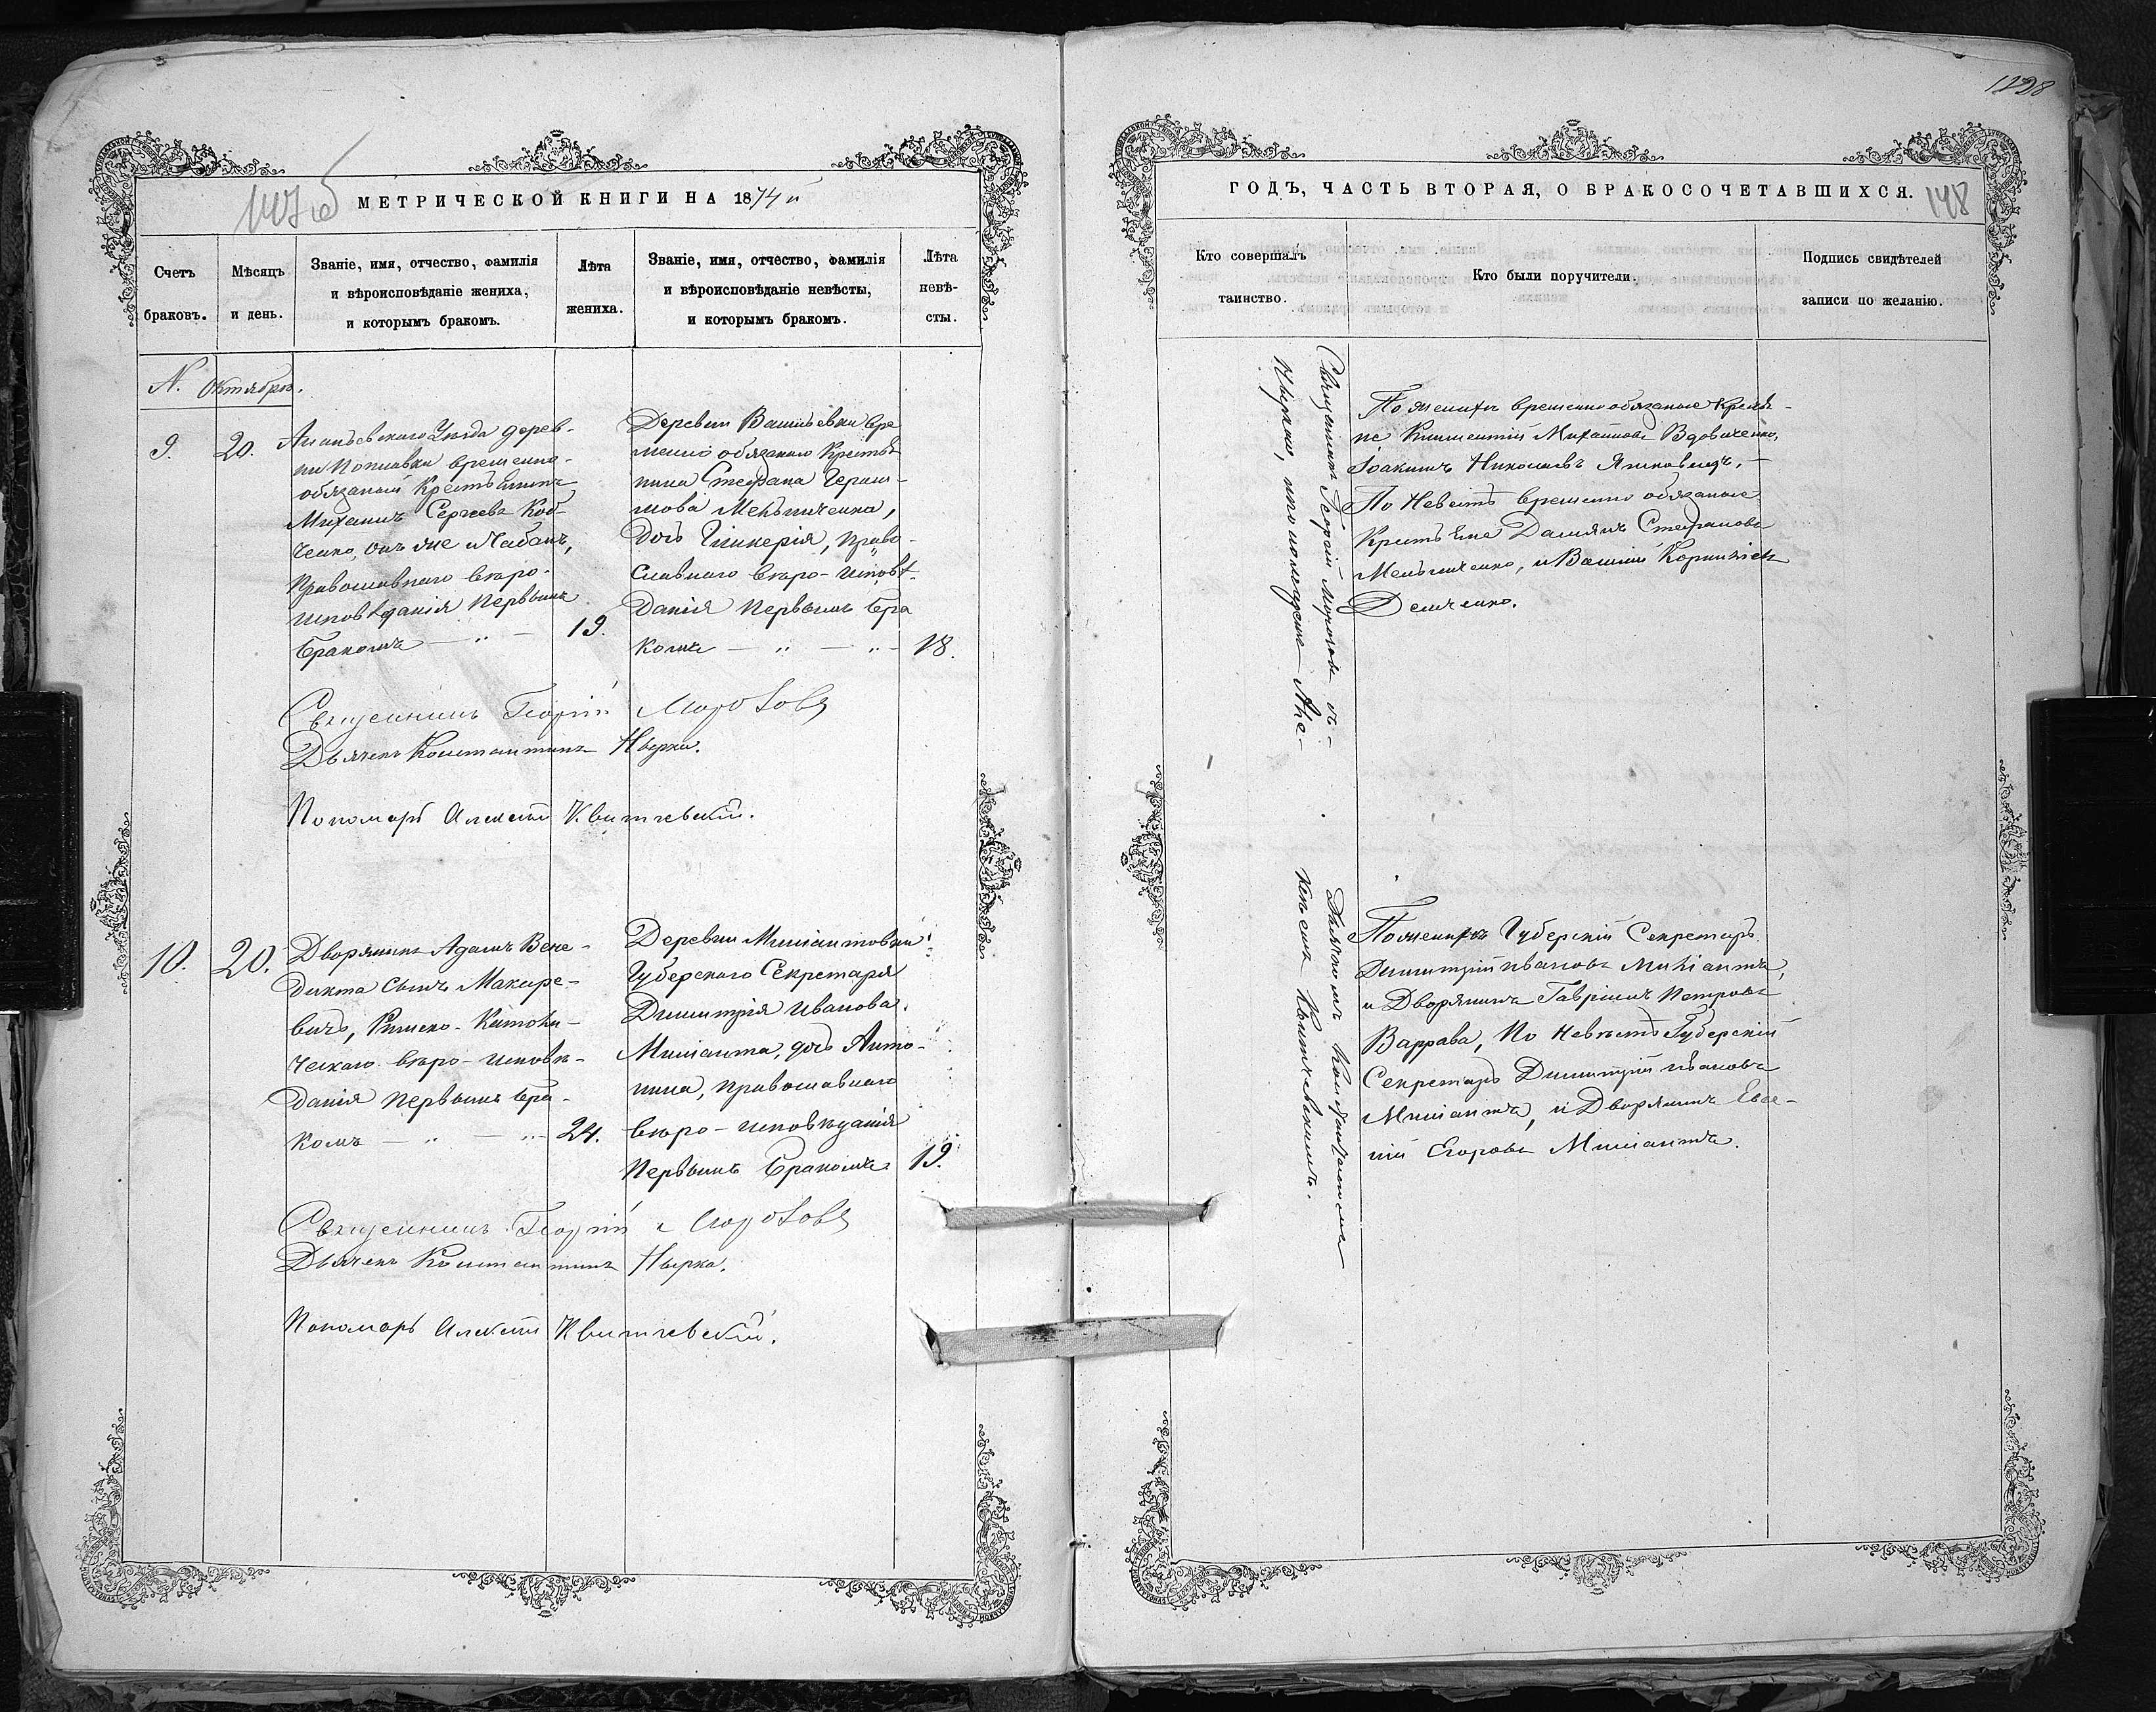 147об
МЕТРИЧЕСКОЙ КНИГИ НА 1874й
Счетъ браковъ.
Мѣсяцъ и день.
Званіе, имя, отчество, фамилія и вѣроисповѣданіе жениха, и которымъ бракомъ.
Лѣта жениха.
Званіе, имя, отчество, фамилія и вѣроисповѣданіе невѣсты, и которымъ бракомъ.
Лѣта невѣ- сты.
N. Октябрь.
9. 20.
Ананьевскаго Уѣзда дерев-
ни Поповки временно-
обязаный Крестьянинъ
Михаилъ Сергѣевъ Коб-
ченко, онъ же и Чабанъ,
Православнаго вѣро-
исповѣданія первымъ
бракомъ — „ — 19.
Деревни Васильевки вре
менно обязанаго Крестья
нина Стефана Гераси-
мова Мельниченка,
дочь Гликерія, право-
славнаго вѣро-исповѣ-
данія первымъ бра
комъ — „ — „ — 18.
Священникъ Георгій Моροзовъ
Дьячекъ Константинъ Нырка.
Пономарь Алексѣй Квитчевскій.
10. 20.
Дворянинъ Адамъ Бене-
дикта сынъ Макаре-
вичъ, Римско-Католи-
ческаго вѣро-исповѣ-
данія первымъ бра-
комъ — „ — „ — 24.
Деревни Милиантовки
Губерскаго Секретаря
Димитрія Иванова
Милианта, дочь Анто-
нина, православнаго
вѣро-исповѣданія
первымъ бракомъ 19.
Священникъ Георгій Морозовъ
Дьячекъ Константинъ Нырка.
Пономарь Алексѣй Квитчевскій.
148
ГОДЪ, ЧАСТЬ ВТОРАЯ, О БРАКОСОЧЕТАВШИХСЯ.
Кто совершалъ таинство.
Кто были поручители.
Подпись свидѣтелей записи по желанію.
Священникъ Георгій Морозовъ съ
Дьячкомъ Константиномъ
Ныркою, и пономаремъ Але-
ксѣемъ Квитчевскимъ.
По женихѣ временно обязаные Крестья-
не Климентій Михайловъ Вдовиченко,
Іоакимъ Николаевъ Янковецъ, —
По Невѣстѣ временно обязаные
Крестьяне Даміянъ Стефановъ
Мельниченко, и Василій Корнилiевъ
Демченко.
По женихѣ Губерскій Секретарь
Димитрій Ивановъ Милiантъ,
и Дворянинъ Гавріилъ Петровъ
Варрава, По Невѣстѣ Губерскій
Секретарь Димитрій Ивановъ
Милiантъ, и Дворянинъ Евге-
ній Егоровъ Милiантъ.